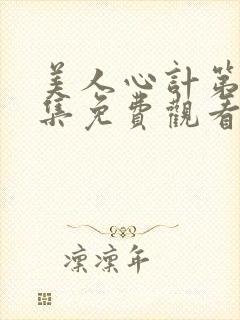 美人心計第
集免費觀看
凜凜年